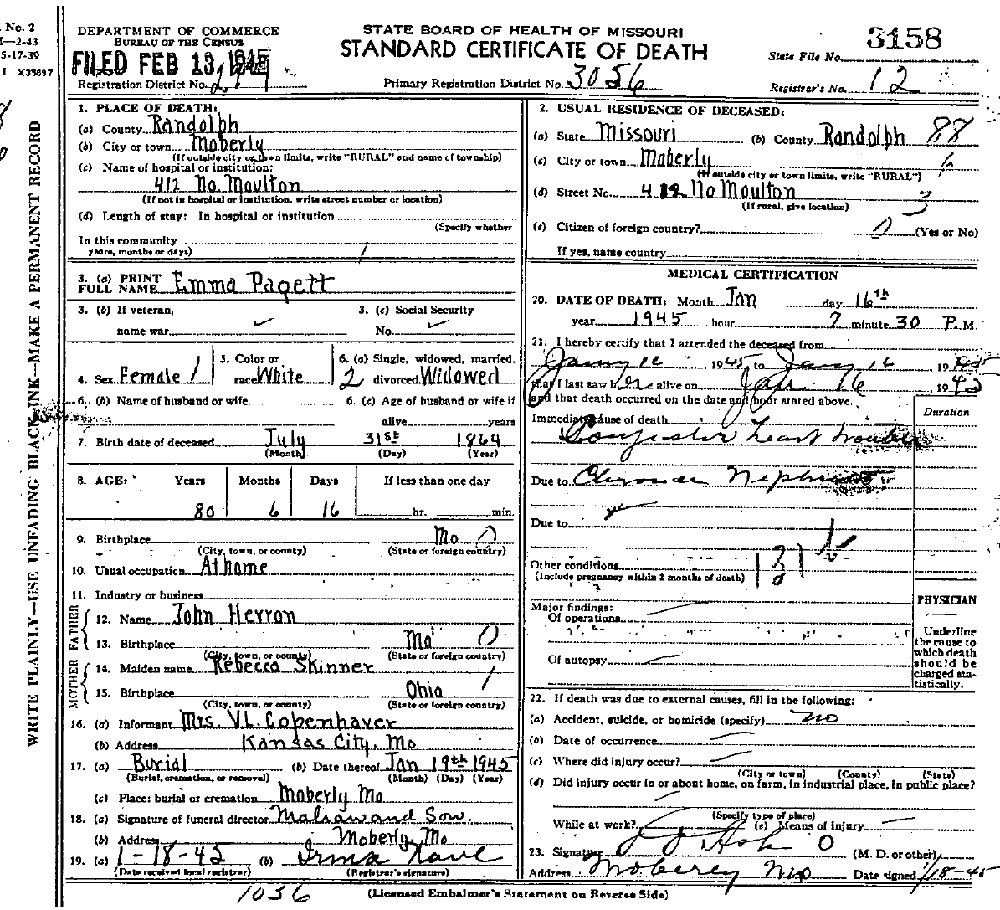 DEPARTMENT OF COMMERCE
BUREAU OF THE CENSUS
STATE BOARD OF HEALTH OF MISSOURI
STANDARD CERTIFICATE OF DEATH
State File No. 3158
FILED FEB 13, 1945
Registration District No.
Primary Registration District No. 3056
Registrar's No. 12
No. 2
2-43
5-17-39
X35697
WRITE PLAINLY—USE UNFADING BLACK INK—MAKE A PERMANENT RECORD
1. PLACE OF DEATH:
(a) County Randolph
(b) City or town Moberly
(If outside city or town limits, write "RURAL" and name of township)
(c) Name of hospital or institution:
412 No. Moulton
(If not in hospital or institution, write street number or location)
(d) Length of stay: In hospital or institution
(Specify whether
In this community
years, months or days)
3. (a) PRINT FULL NAME Emma Pagett
3. (b) If veteran, name war
3. (c) Social Security No.
4. Sex Female 1
5. Color or race White
6. (a) Single, widowed, married, divorced Widowed
2
6. (b) Name of husband or wife
6. (c) Age of husband or wife if alive years
7. Birth date of deceased July 31st 1864
(Month) (Day) (Year)
8. AGE: Years Months Days If less than one day
80 6 16 hr. min.
9. Birthplace Mo 0
(City, town, or county) (State or foreign country)
10. Usual occupation At home
11. Industry or business
FATHER
12. Name John Herron
13. Birthplace Mo 0
(City, town, or county) (State or foreign country)
MOTHER
14. Maiden name Rebecca Skinner
15. Birthplace Ohio 1
(City, town, or county) (State or foreign country)
16. (a) Informant Mrs. V.L. Copenhaver
(b) Address Kansas City, Mo
17. (a) Burial (b) Date thereof Jan 19th 1945
(Burial, cremation, or removal) (Month) (Day) (Year)
(c) Place: burial or cremation Moberly Mo
18. (a) Signature of funeral director and Son
(b) Address Moberly, Mo
19. (a) 1-18-45 (b) Irma
(Date received local registrar) (Registrar's signature)
1036
(Licensed Embalmer's Statement on Reverse Side)
2. USUAL RESIDENCE OF DECEASED:
(a) State Missouri (b) County Randolph 88
(c) City or town Moberly
(If outside city or town limits, write "RURAL")
(d) Street No. 412 No Moulton
(If rural, give location)
(e) Citizen of foreign country? 0 (Yes or No)
If yes, name country
MEDICAL CERTIFICATION
20. DATE OF DEATH: Month Jan day 16th
year 1945 hour 7 minute 30 P.M.
21. I hereby certify that I attended the deceased from
16 1945 to 16 1945
that I last saw her alive on Jan 16 1945
and that death occurred on the date and hour stated above.
Duration
Immediate cause of death
heart trouble
Due to
Due to
Other conditions
(Include pregnancy within 3 months of death)
131
Major findings:
Of operations
Of autopsy
PHYSICIAN
Underline
the cause to
which death
should be
charged sta-
tistically.
22. If death was due to external causes, fill in the following:
(a) Accident, suicide, or homicide (specify) no
(b) Date of occurrence
(c) Where did injury occur?
(City or town) (County) (State)
(d) Did injury occur in or about home, on farm, in industrial place, in public place?
(Specify type of place)
While at work? (e) Means of injury
23. Signature (M. D. or other)
Address Moberly Mo Date signed 1/18-45